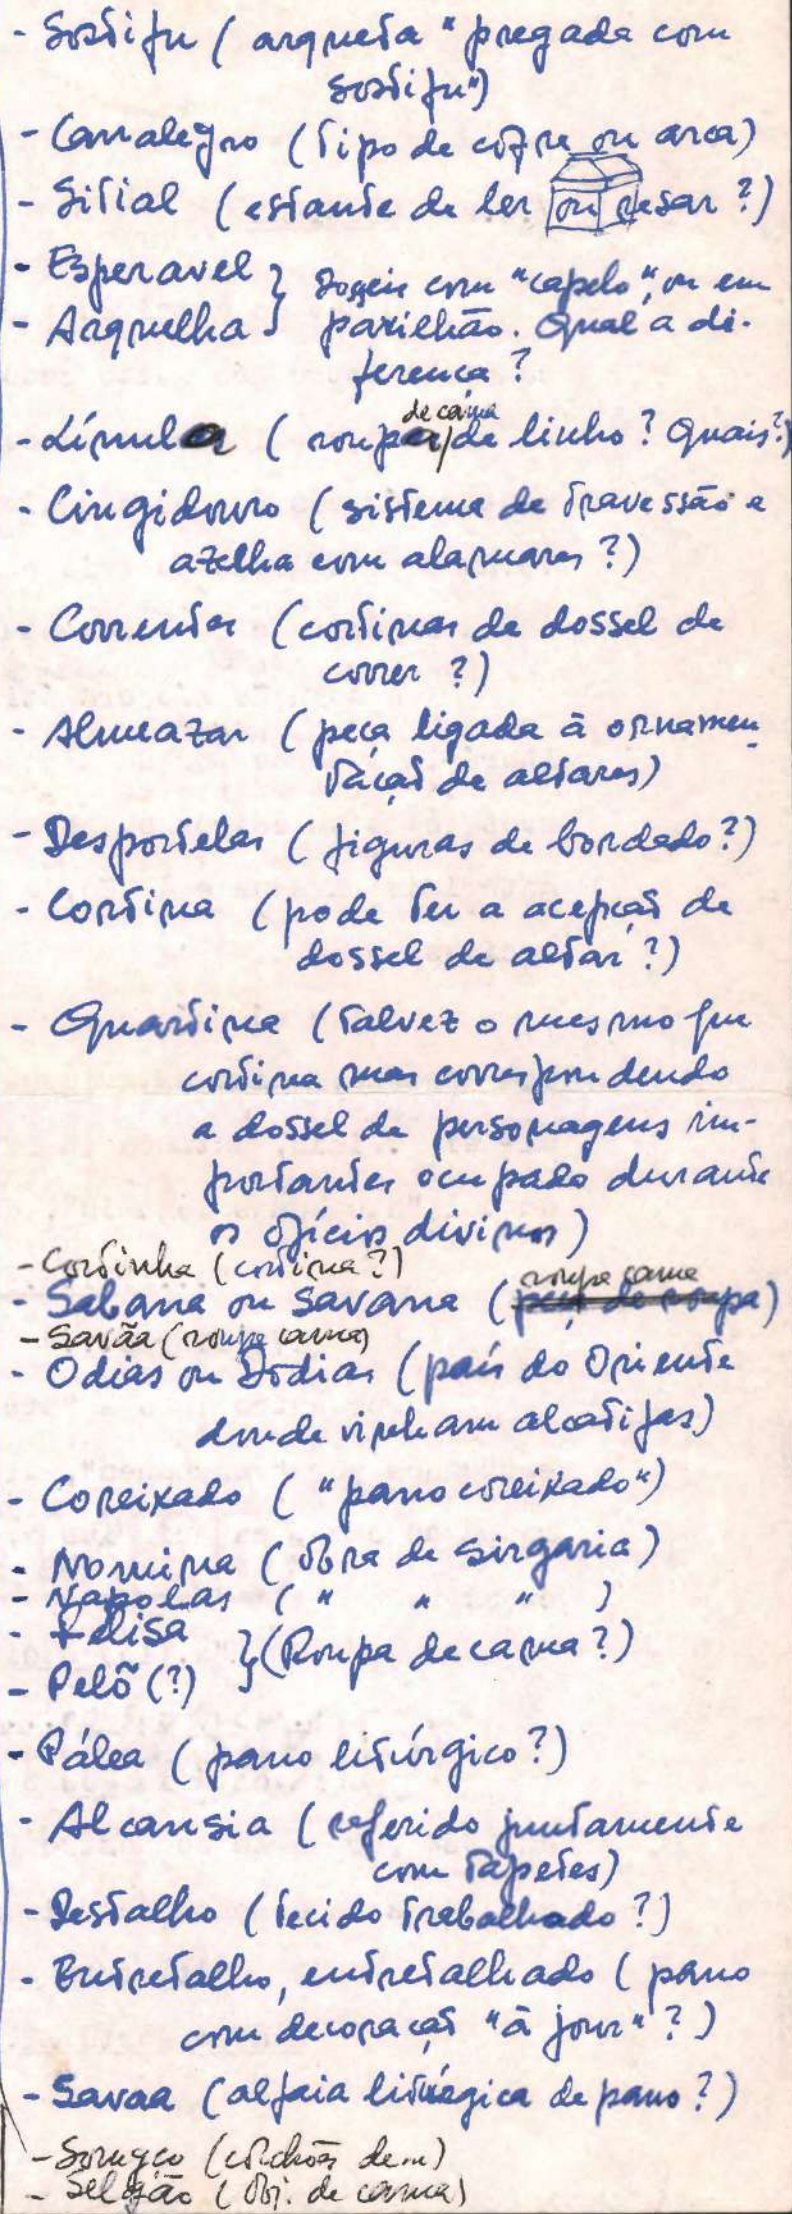 - Sostifu (arqueta "pregada com
sostifu")
- Canalegro (tipo de cofre ou arca)
- Sitial (estante de ler ou resar?)
- Esperavel } com "capelo", ou em
- Arquelha } pavilhão. Qual a di-
ferença?
de cama
- Límula (roupa de linho? Quais?)
- Cingidouro (sistema de travessão e
azelha com alamares?)
- Correntes (cortinas de dossel de
correr?)
- Almeazar (peça ligada à ornamen-
tação de altares)
- Desportelas (figuras de bordado?)
- Cortina (pode ter a acepção de
dossel de altar?)
- Quartina (talvez o mesmo que
cortina mas correspondendo
a dossel de personagens im-
portantes ocupado durante
os ofícios divinos)
- Cortinha (cortina?)
roupa cama
- Sabana ou Savana (peça de roupa)
- Savãa (roupa cama)
- Odias ou Dodias (país do Oriente
donde vinham alcatifas)
- Coreixado ("pano coreixado")
- Nomina (obra de sirgaria)
- Napolas ( " " " )
- Felisa
- Pelõ (?) } (Roupa de cama?)
- Pálea (pano litúrgico?)
- Alcansia (referido juntamente
com tapetes)
- Destalho (tecido trabalhado?)
- Entretalho, entretalhado (pano
com decoração "à jour"?)
- Savaa (alfaia litúrgica de pano?)
- (colchões de...)
- (obj. de cama)